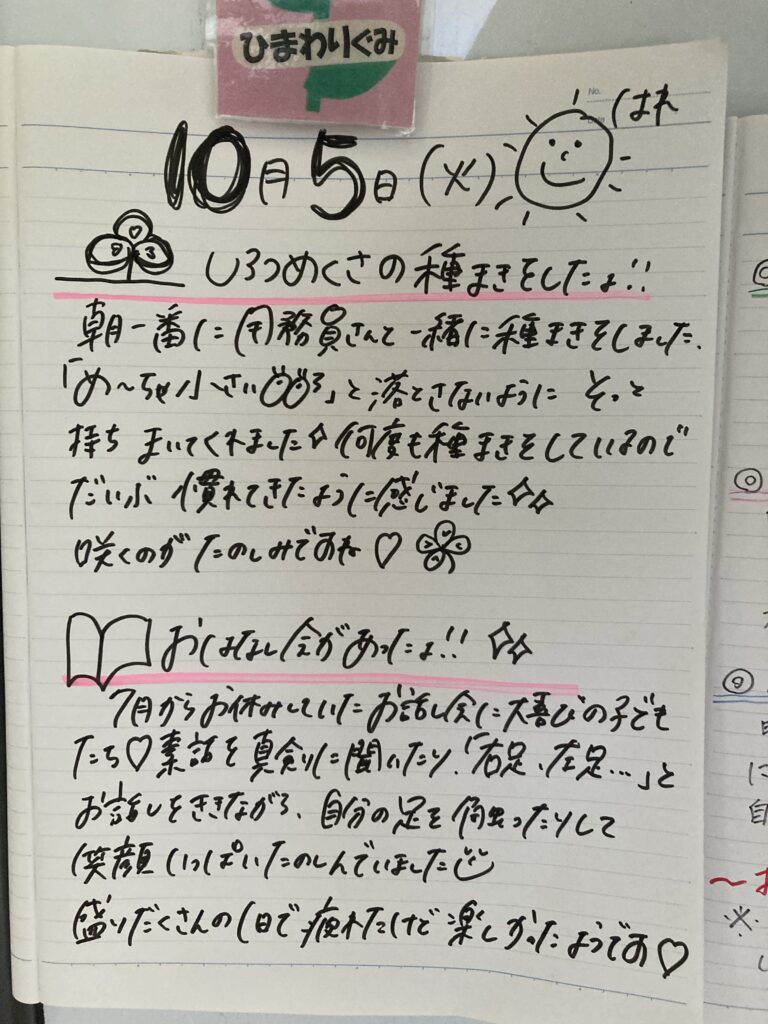 ひまわりぐみ
No.
10月5日(火) はれ
しろつめくさの種まきをしたよ!!
朝一番に用務員さんと一緒に種まきをしました。
「め〜ちゃ小さいね」と落とさないように そっと
持ち まいてくれました 何度も種まきをしているので
だいぶ 慣れてきたように感じました
咲くのが たのしみですね♡
おはなし会があったよ!!
7月からお休みしていた お話し会に大喜びの子ども
たち♡ 素話を真剣に聞いたり、「右足、左足…」と
お話しをききながら、自分の足を触ったりして
笑顔いっぱいたのしんでいました
盛りだくさんの1日で 疲れたけど 楽しかったようです♡